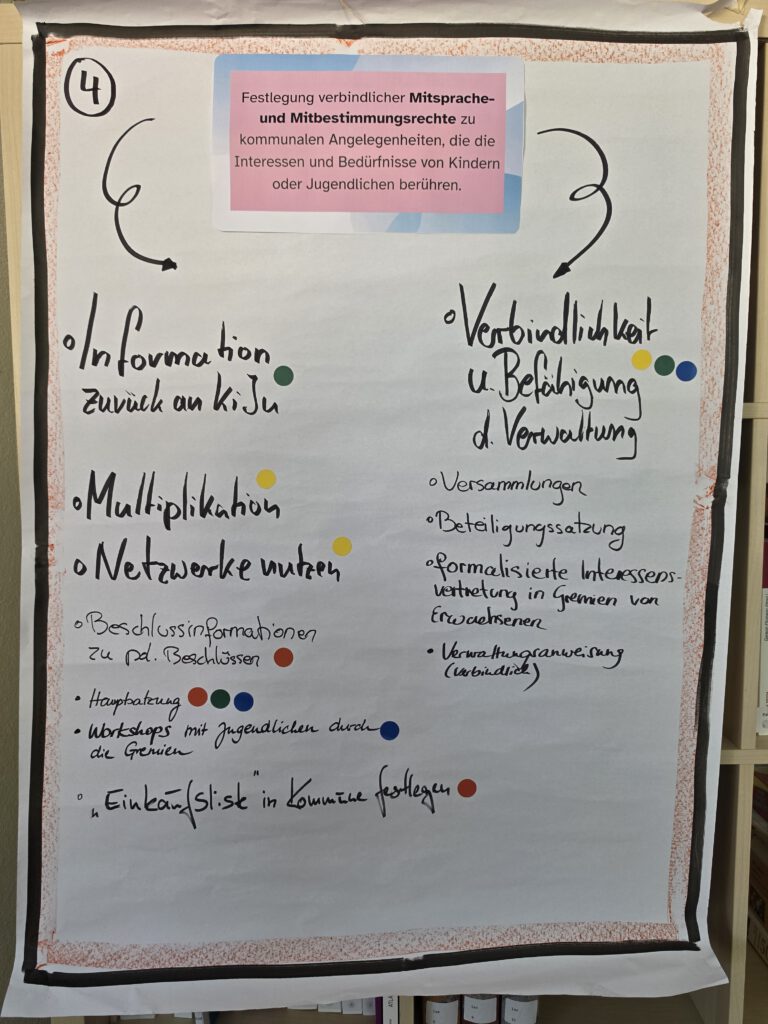 4
Festlegung verbindlicher Mitsprache-
und Mitbestimmungsrechte zu
kommunalen Angelegenheiten, die die
Interessen und Bedürfnisse von Kindern
oder Jugendlichen berühren.
o Information
zurück an KiJu
o Multiplikation
o Netzwerke nutzen
o Beschlussinformationen
zu pol. Beschlüssen
• Hauptsatzung
• Workshops mit Jugendlichen durch
die Gremien
o „Einkaufsliste" in Kommune festlegen
o Verbindlichkeit
u. Befähigung
d. Verwaltung
o Versammlungen
o Beteiligungssatzung
o formalisierte Interessens-
vertretung in Gremien von
Erwachsenen
• Verwaltungsanweisung
(verbindlich)